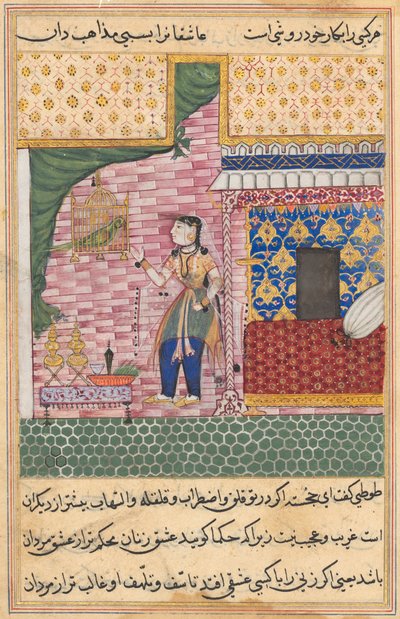 هرکسی را بکار خود روشی است عاشقانرا بسی مذاهب دان
طوطی کفت ای خجسته اکر در تو قلق و اضطراب و قلقله و التهاب بیشتر از دیکران
است غریب و عجیب نیست زیراکه حکما کویند عشق زنان محکم تر از عشق مردان
باشد یعنی اکر زنی را با کسی عشقی افتد تاسف و تلهف او غالب تر از مردان